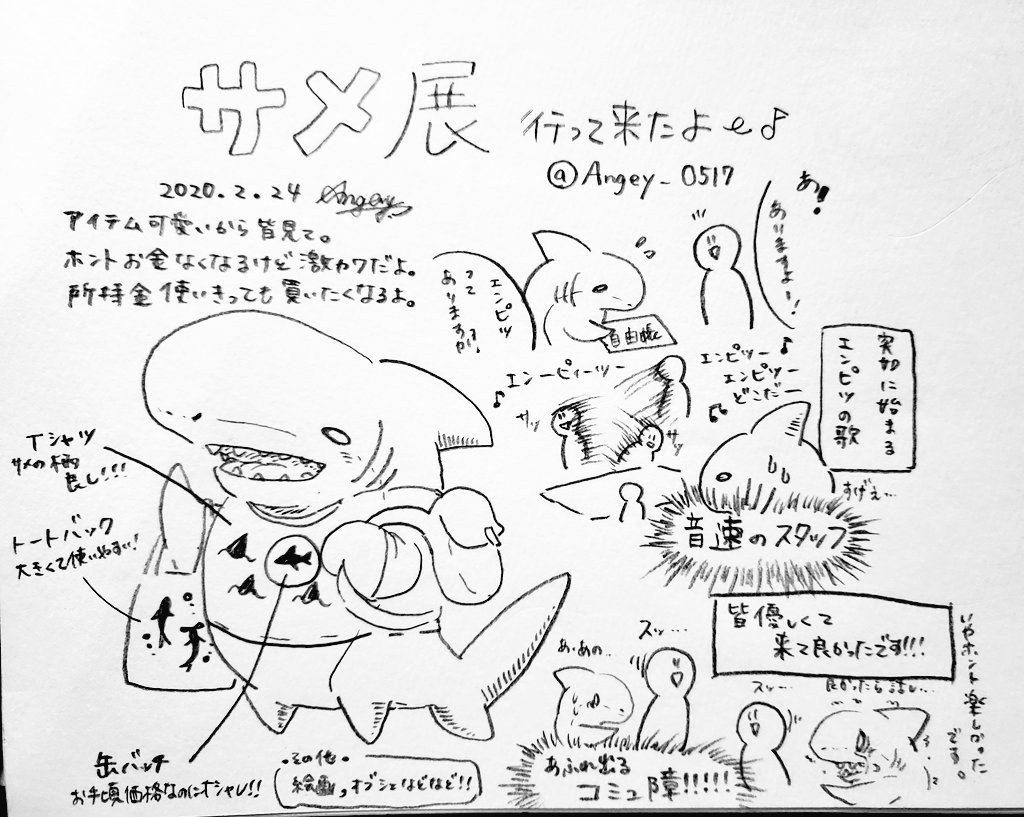 サメ展
行って来たよ〜♪
@Angey_0517
2020.2.24 Angey
アイテム可愛いから皆見て。
ホントお金なくなるけど激カワだよ。
所持金使いきっても買いたくなるよ。
あ!
ありますよー!
エンピツ
って
ありますか?
自由帳
エンーピィーツー
♪
サッ
サッ
エンピツー♪
エンピツー
どこだー
♪
実如に始まる
エンピツの歌
すげぇ…
音速のスタッフ
Tシャツ
サメの柄
良し!!!
トートバック
大きくて使いやすい!
缶バッチ
お手頃価格なのにオシャレ!!
・その他・
絵画、オブジェなどなど!!
皆優しくて
来て良かったです!!!
いやホント楽しかった
です。
スッ…
あ、あの…
あふれ出る
コミュ障!!!!!
スッ…
良かったら話し…